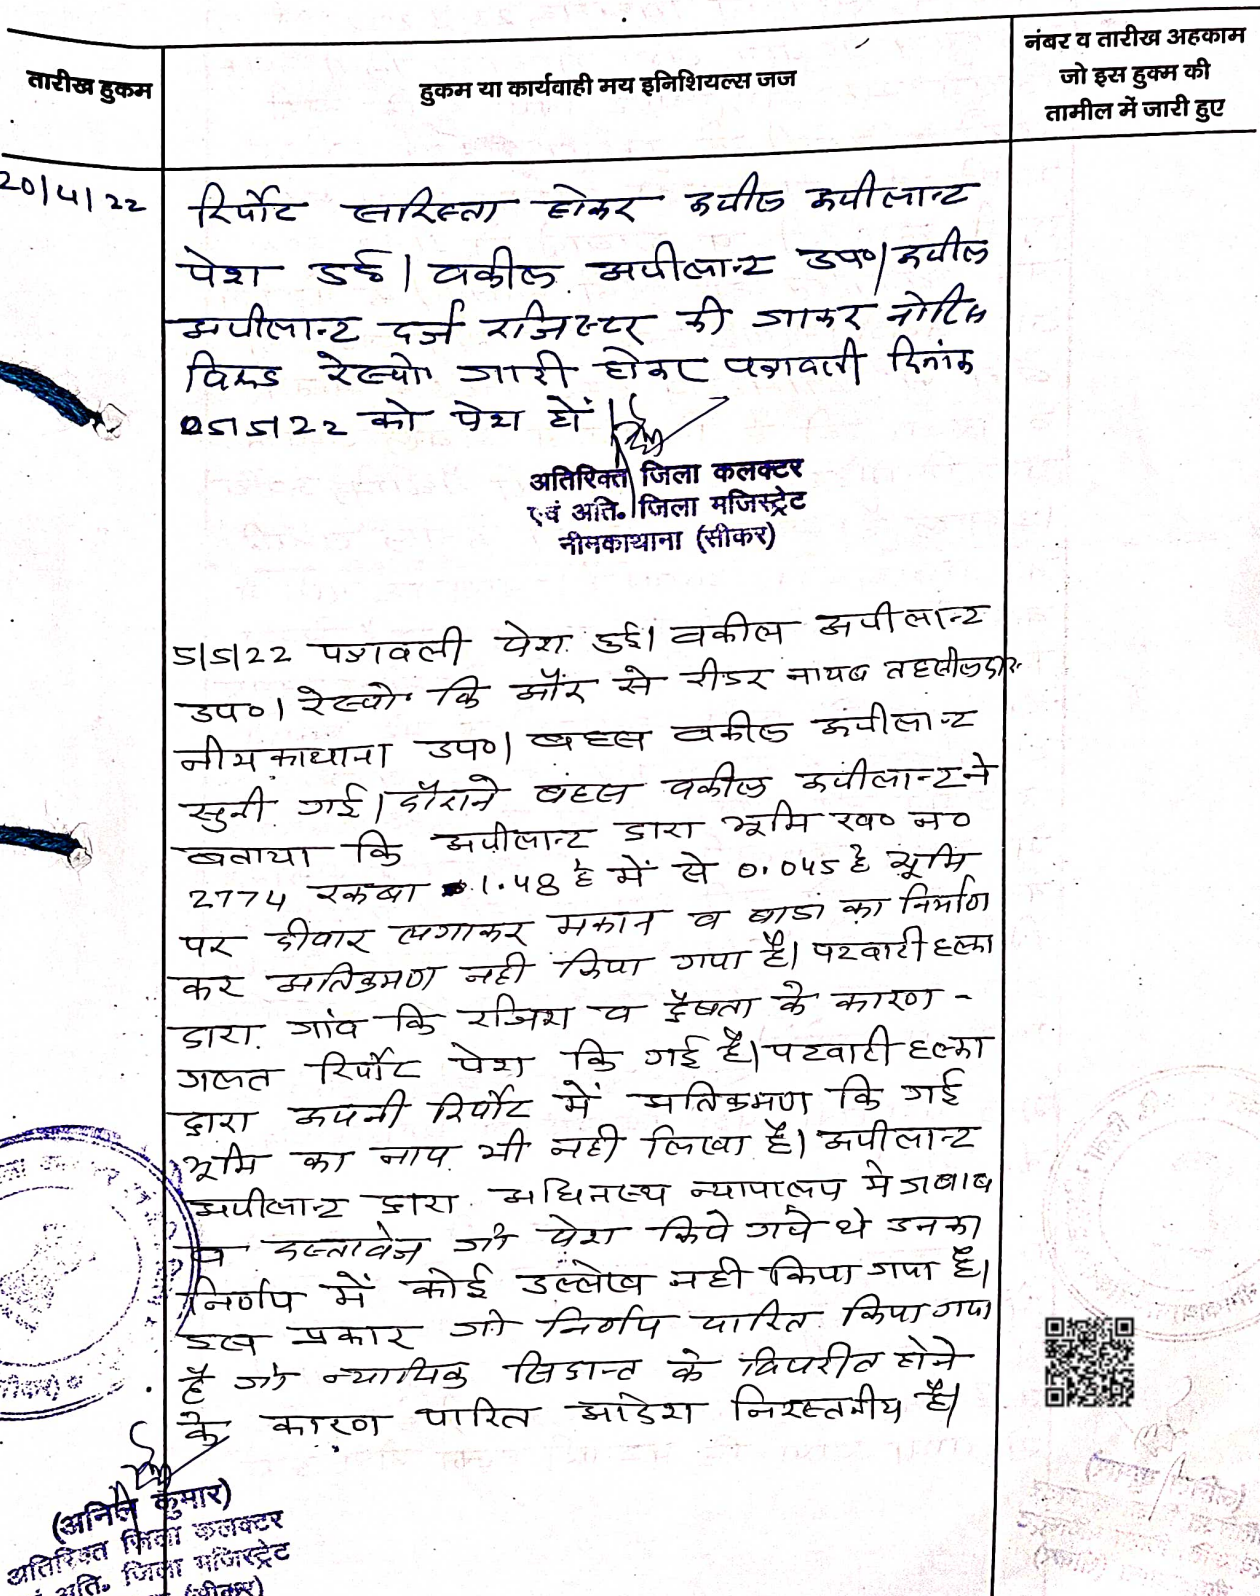 तारीख हुकम
हुकम या कार्यवाही मय इनिशियल्स जज
नंबर व तारीख अहकाम
जो इस हुक्म की
तामील में जारी हुए
20/4/22
रिर्पोट सरिस्ता होकर अपील अपीलान्ट
पेश हुई। वकील अपीलान्ट उप०। अपील
अपीलान्ट दर्ज रजिस्टर की जाकर नोटिस
विरूद्ध रेस्पो० जारी होकर पत्रावली दिनांक
05/5/22 को पेश हों।
अतिरिक्त जिला कलक्टर
एवं अति. जिला मजिस्ट्रेट
नीमकाथाना (सीकर)
5/5/22 पत्रावली पेश हुई। वकील अपीलान्ट
उप०। रेस्पो० कि और से रीडर नायब तहसीलदार
नीमकाथाना उप०। बहस वकील अपीलान्ट
सुनी गई। दौराने बहस वकील अपीलान्ट ने
बताया कि अपीलान्ट द्वारा भूमि ख० न०
2774 रकबा 1.48 है में से 0.045 है भूमि
पर दीवार लगाकर मकान व बाडा का निर्माण
कर अतिक्रमण नही किया गया है। पटवारी हल्का
द्वारा गांव कि रंजिश व द्वैषता के कारण -
गलत रिर्पोट पेश कि गई है। पटवारी हल्का
द्वारा अपनी रिर्पोट में अतिक्रमण कि गई
भूमि का नाप भी नही लिखा है। अपीलान्ट
अपीलान्ट द्वारा अधिनस्थ न्यायालय मे जबाब
व दस्तावेज जो पेश किये गये थे उनका
निर्णय में कोई उल्लेख नही किया गया है।
इस प्रकार जो निर्णय पारित किया गया
है जो न्यायिक सिद्धान्त के विपरीत होने
के कारण पारित आदेश निरस्तनीय है।
(अनिल कुमार)
अतिरिक्त जिला कलक्टर
अति. जिला मजिस्ट्रेट
(सीकर)